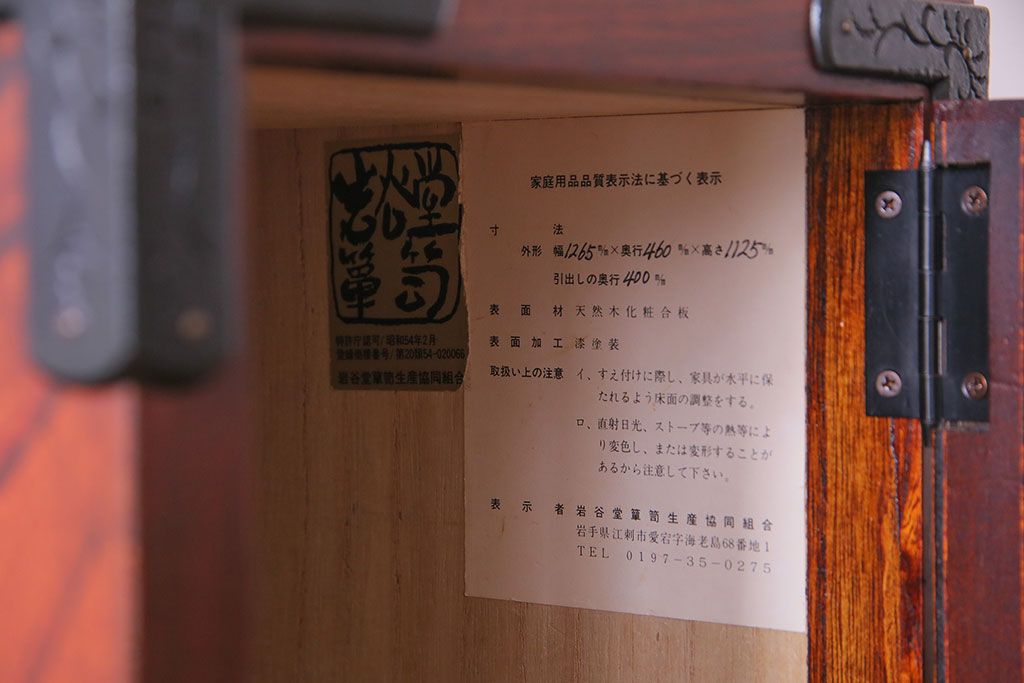 岩谷堂
箪笥
特許庁認可/昭和54年2月
登録商標番号/第20類54-020066
岩谷堂簞笥生産協同組合
家庭用品品質表示法に基づく表示
寸法
外形 幅1265㎜×奥行460㎜×高さ1125㎜
引出しの奥行400㎜
表面材 天然木化粧合板
表面加工 漆塗装
取扱い上の注意 イ、すえ付けに際し、家具が水平に保
たれるよう床面の調整をする。
ロ、直射日光、ストーブ等の熱等によ
り変色し、または変形することが
あるから注意して下さい。
表示者 岩谷堂簞笥生産協同組合
岩手県江刺市愛宕字海老島68番地1
TEL 0197-35-0275